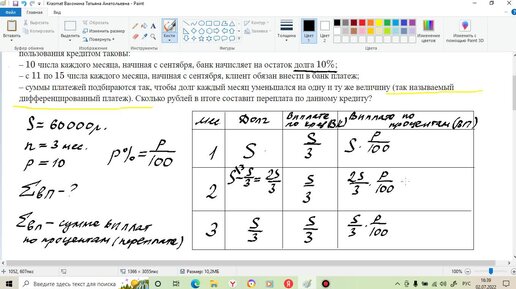 Кларнет Вагонина Татьяна Анатольевна - Paint
Файл
Главная
Вид
Вставить
Буфер обмена
Выделить
Изображение
Инструменты
Кисти
Фигуры
Контур
Заливка
Толщина
Цвет 1
Цвет 2
Цвета
Изменение цветов
Изменить с помощью Paint 3D
пользования кредитом таковы:
– 10 числа каждого месяца, начиная с сентября, банк начисляет на остаток долга 10%;
– с 11 по 15 числа каждого месяца, начиная с сентября, клиент обязан внести в банк платеж;
– суммы платежей подбираются так, чтобы долг каждый месяц уменьшался на одну и ту же величину (так называемый
дифференцированный платеж). Сколько рублей в итоге составит переплата по данному кредиту?
S = 60000 р.
n = 3 мес.
p = 10
p% = p/100
Σвп – ?
Σвп – сумма выплат
по процентам (переплата)
мес
Долг
Выплата по кред (ВК)
Выплата по процентам (ВП)
1
S
S/3
S · p/100
2
S – S/3 = 2S/3
S/3
2S/3 · p/100
3
S/3
S/3
S/3 · p/100
1052, 607пкс
1366 × 3055пкс
Размер: 10,2МБ
100%
Введите здесь текст для поиска
РУС
16:39
02.07.2022